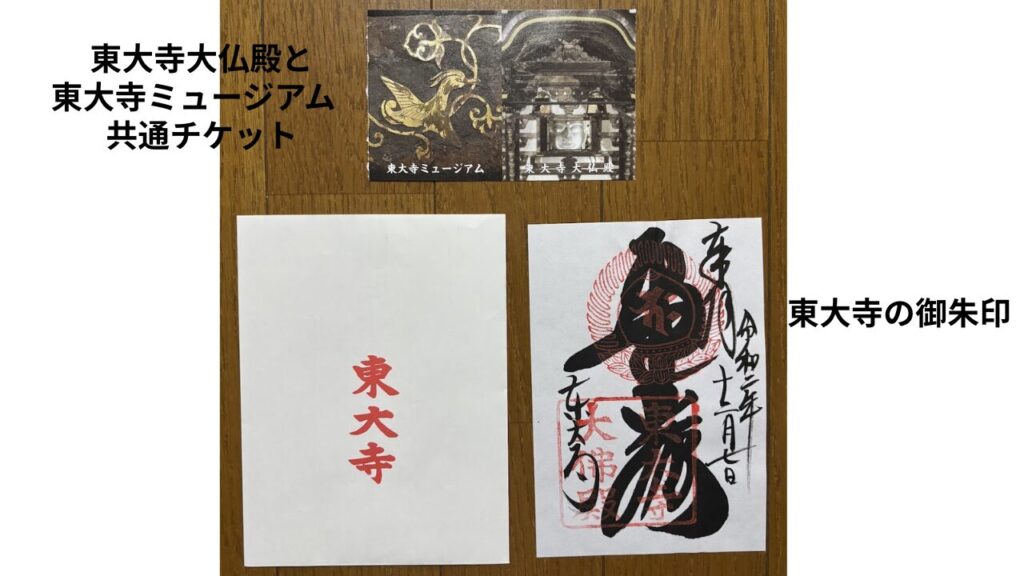 東大寺大仏殿と
東大寺ミュージアム
共通チケット
東大寺ミュージアム
東大寺大仏殿
東大寺
奉拝
令和二年
華厳
東大寺
東大寺
大佛殿
東大寺の御朱印